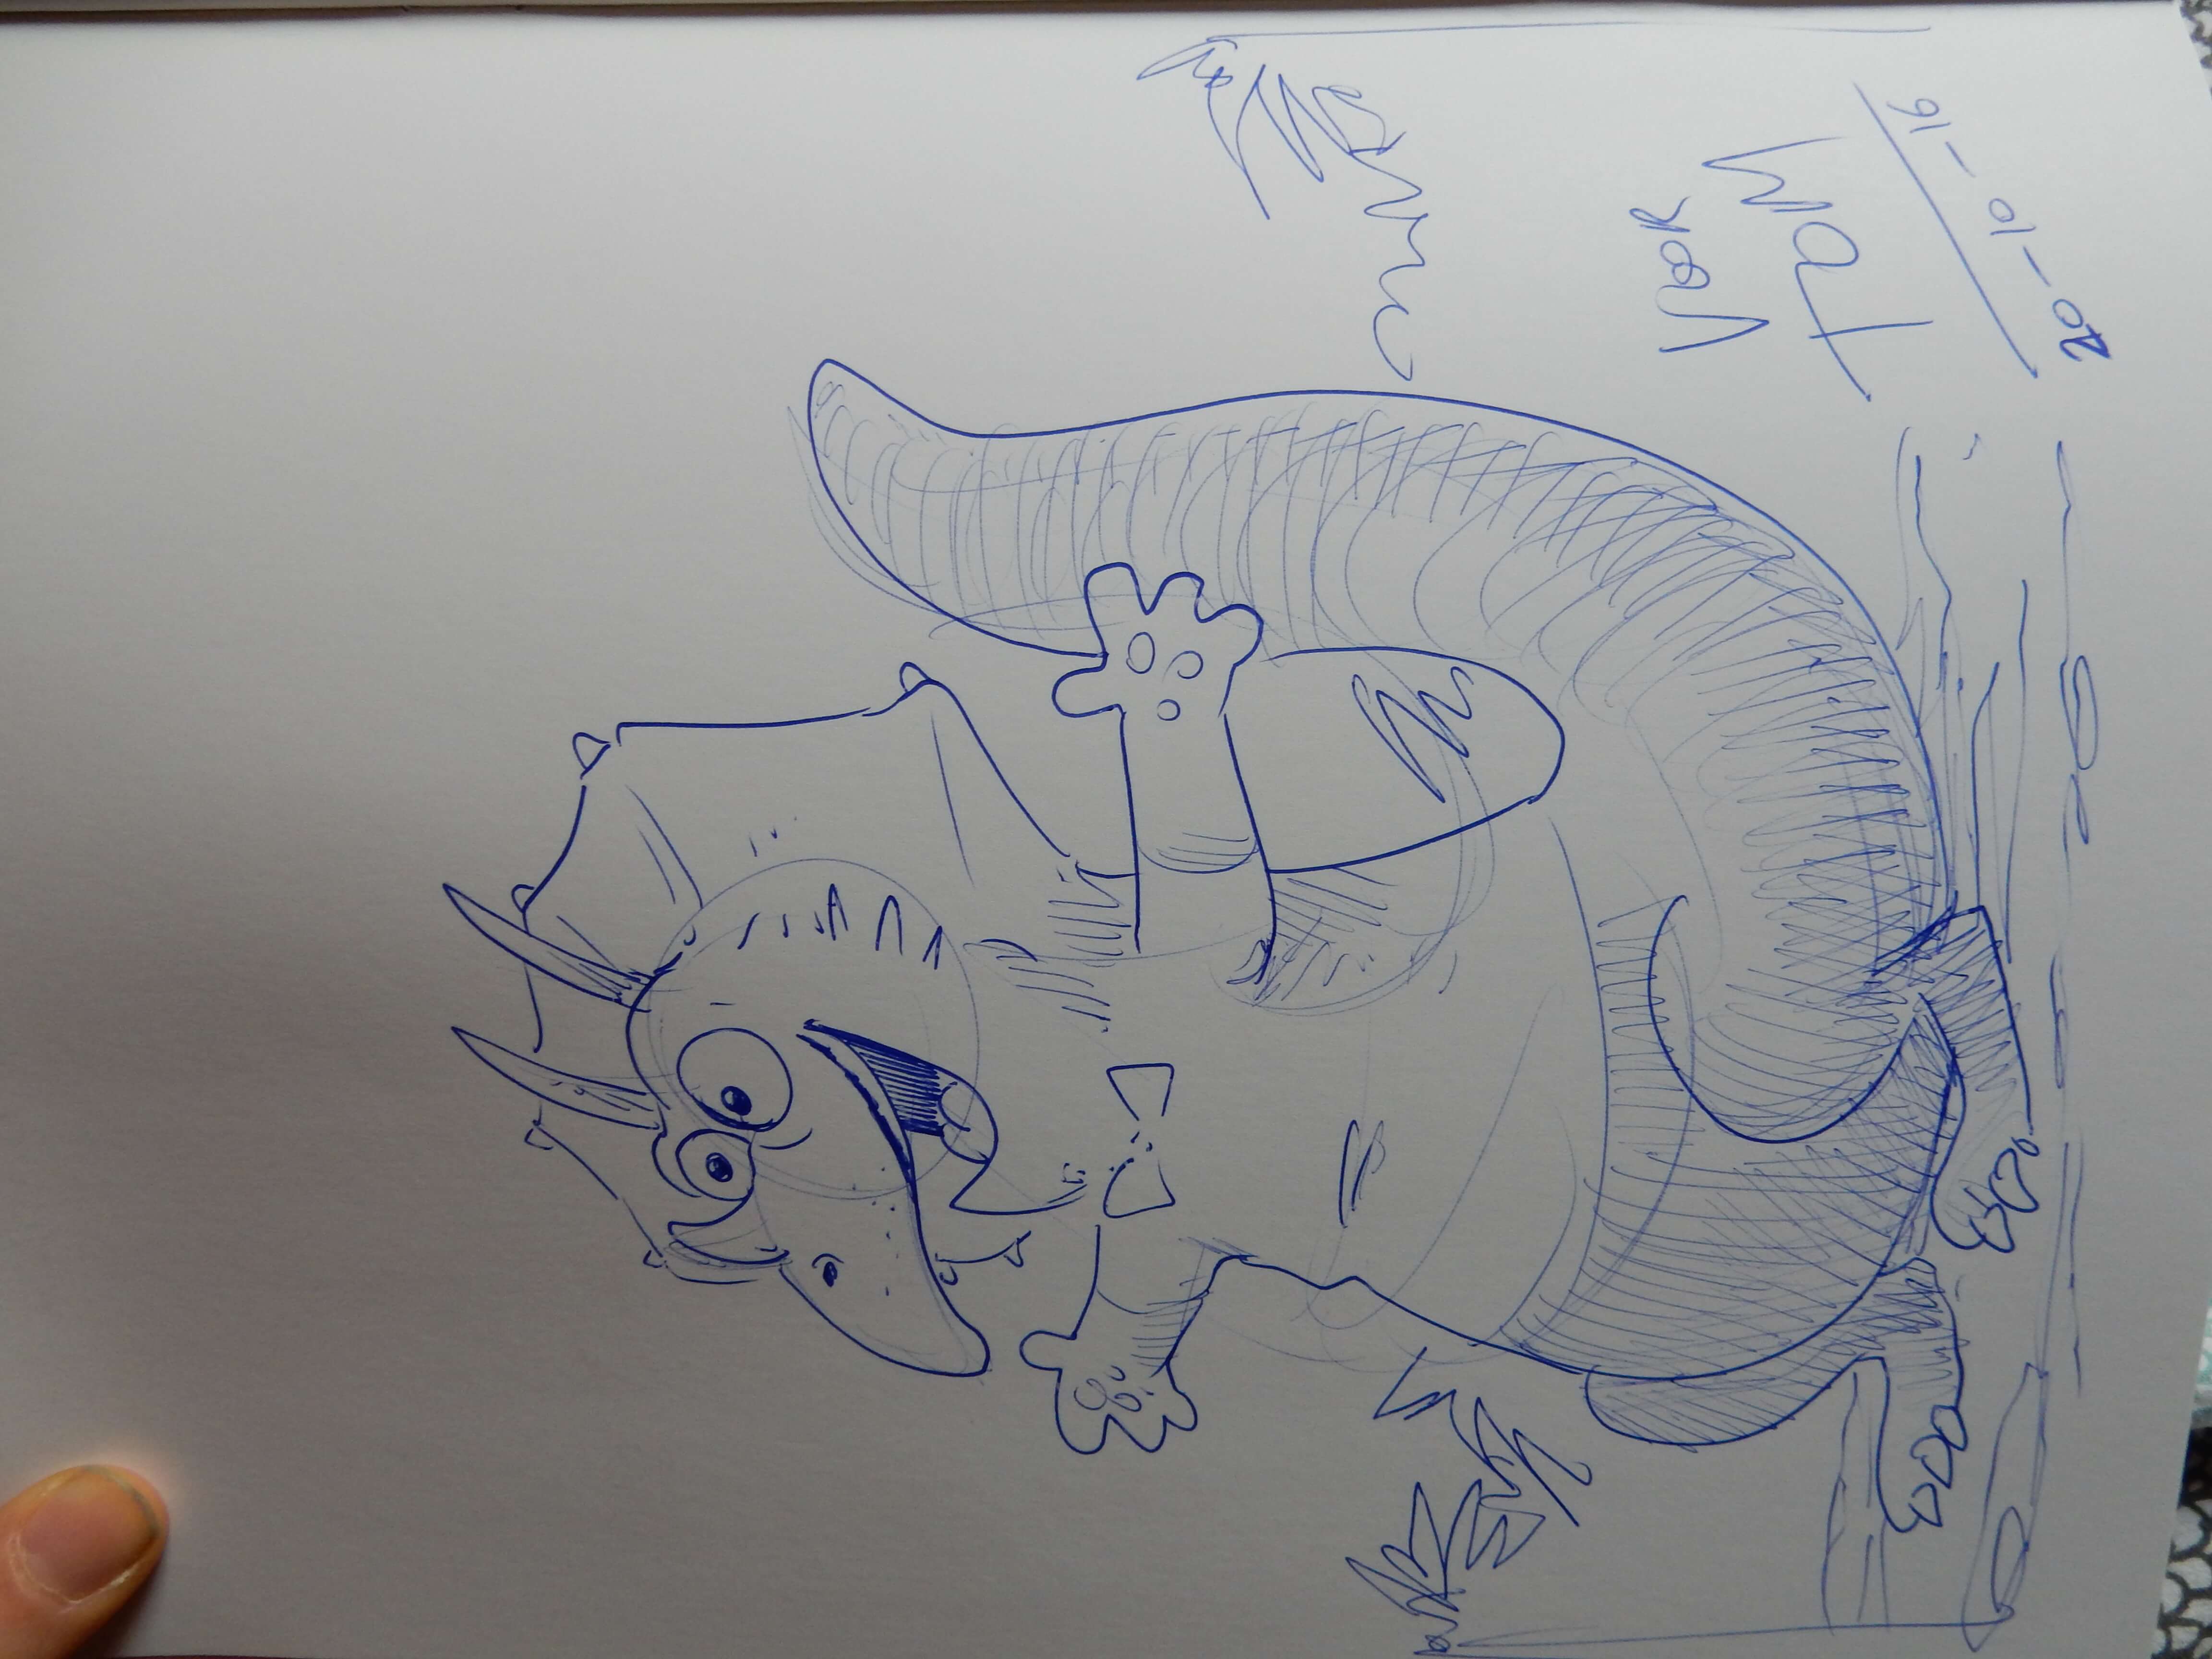 VOOR
TOM
20-10-16